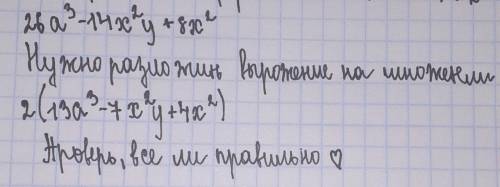 26a³-14x²y+8x²
Нужно разложить выражение на множители
2(13a³-7x²y+4x²)
Проверь, все ли правильно ♡